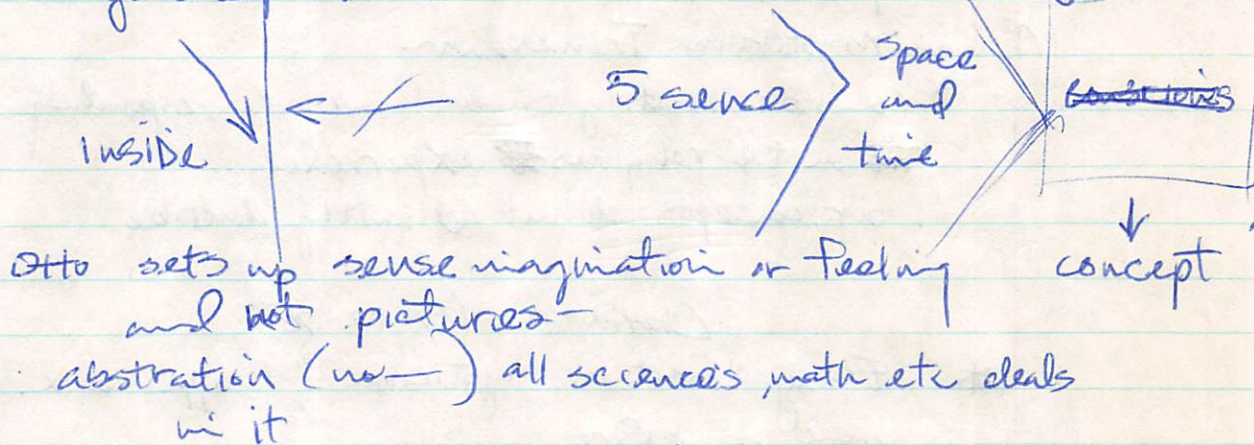 inside
5 sence
space
and
time
Otto sets up sense imagination or feeling
concept
and not pictures—
abstration (no—) all sciences, math etc deals
in it